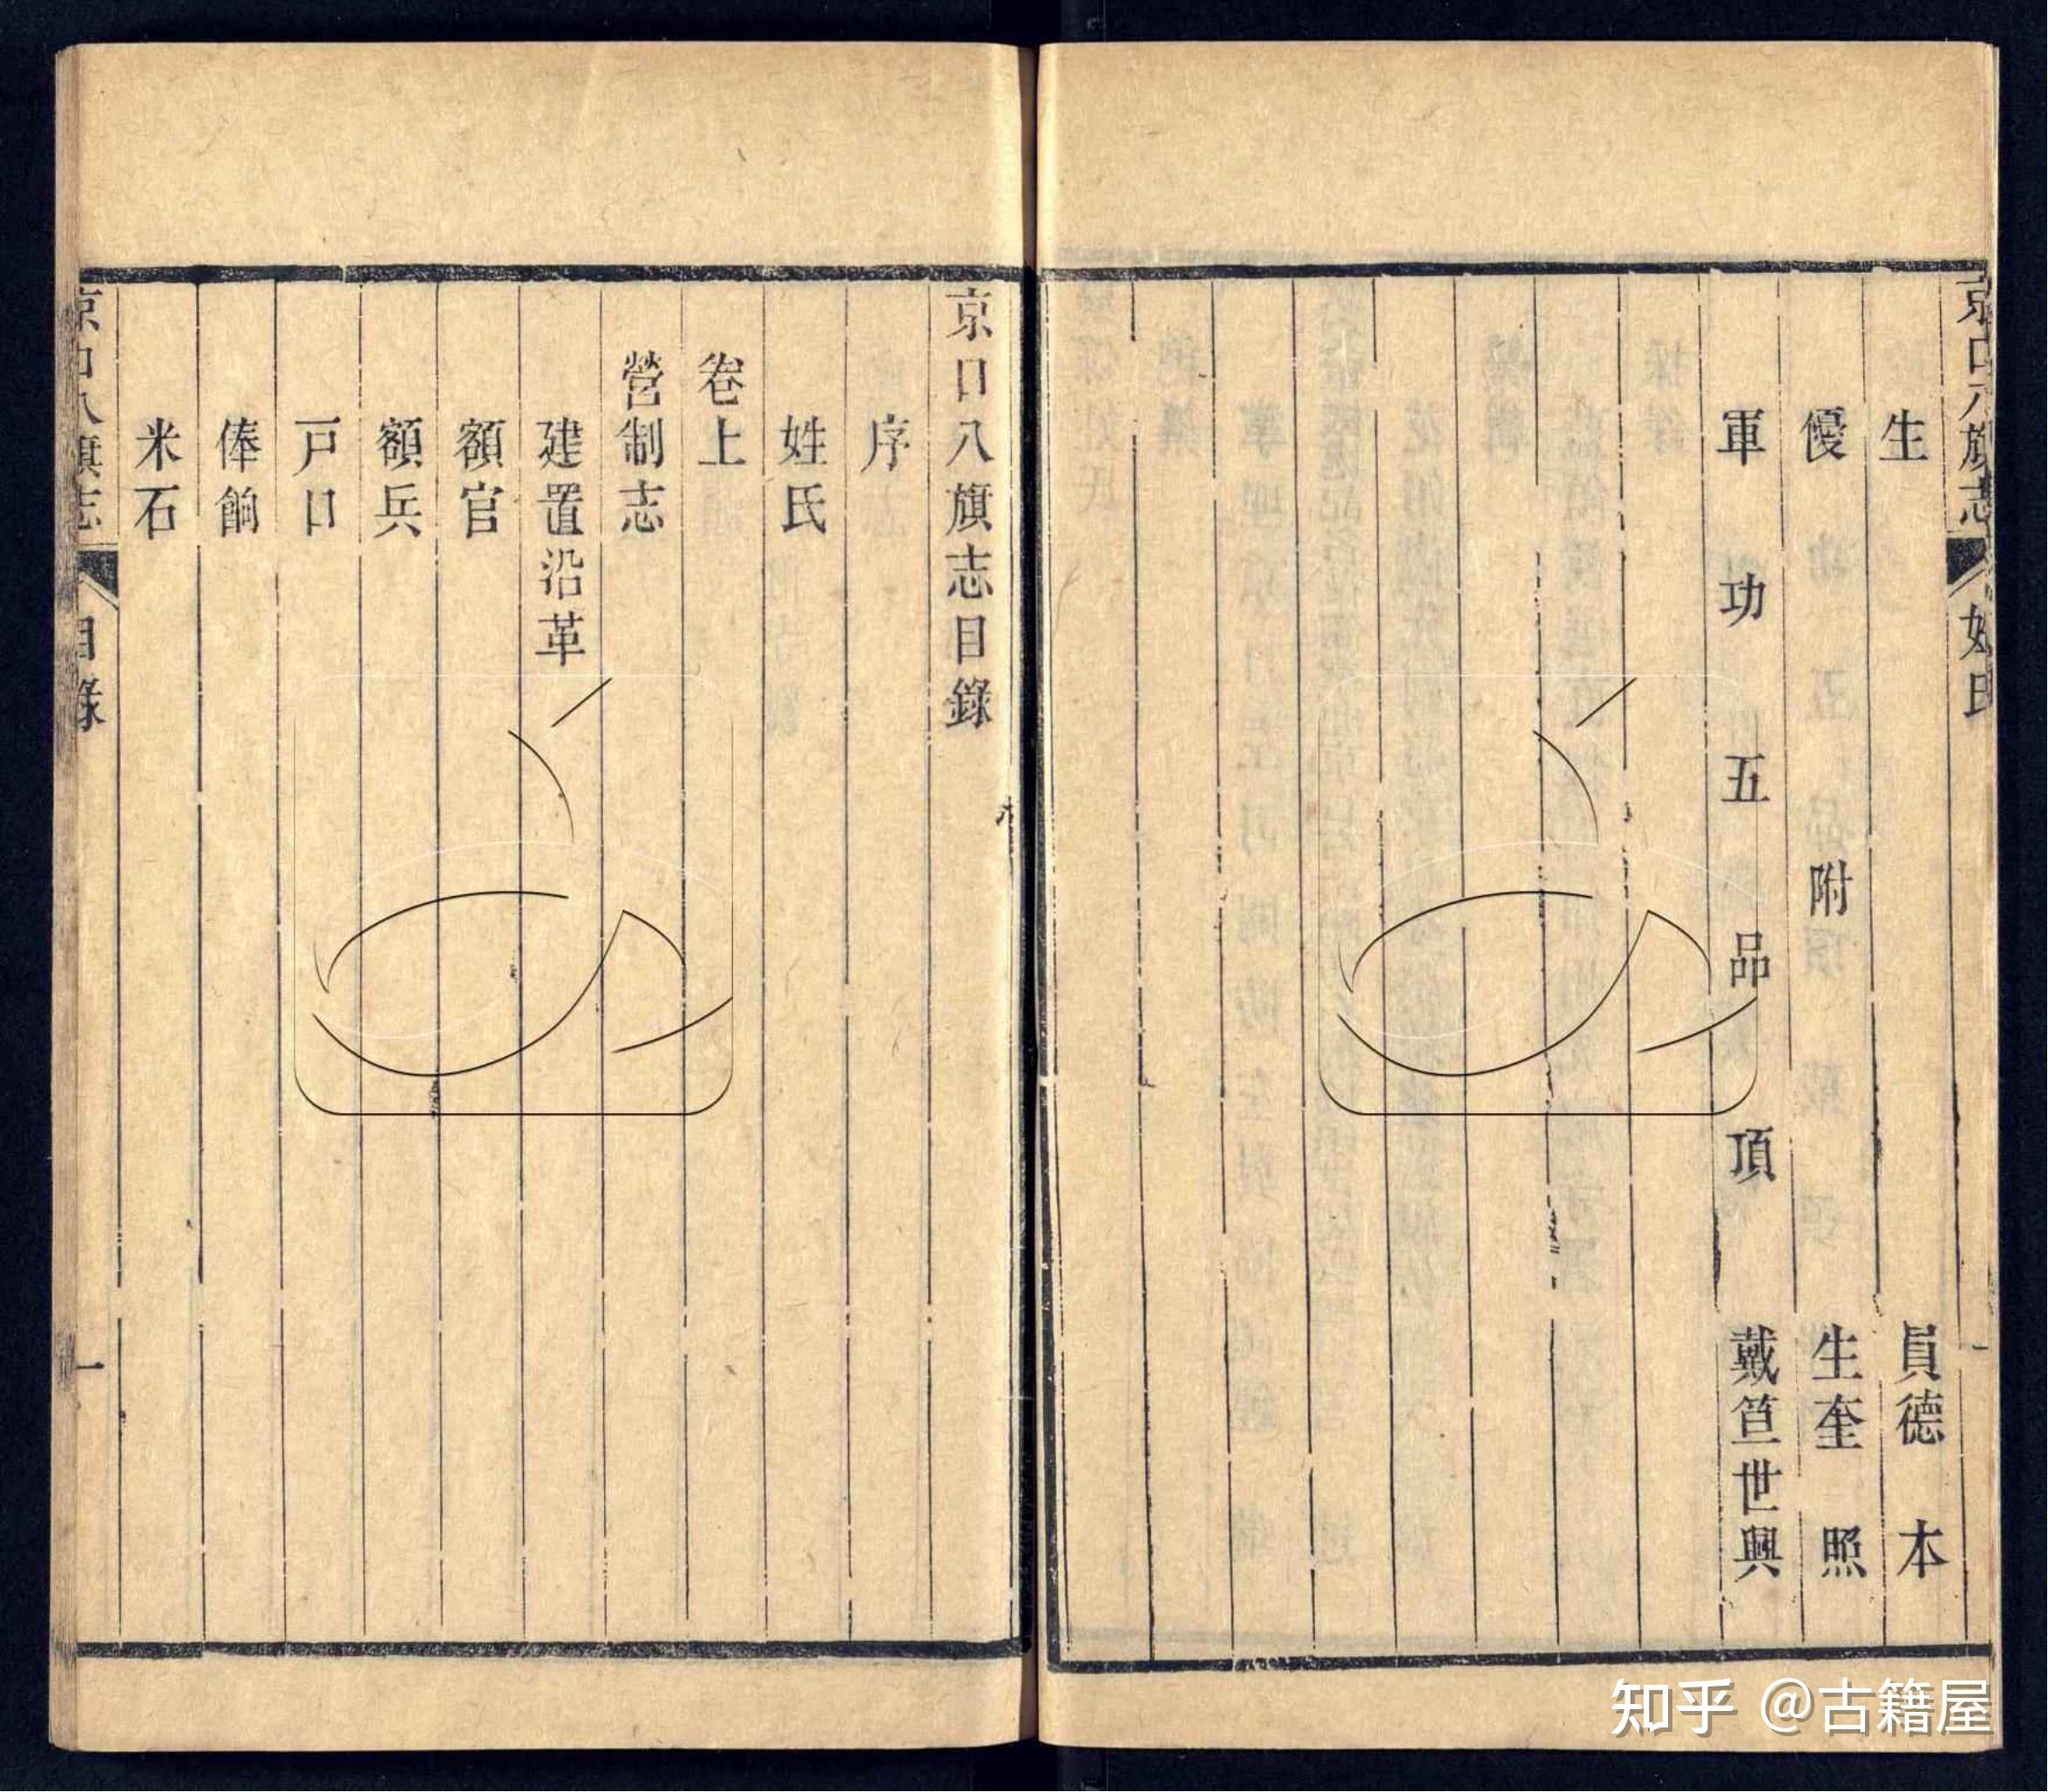 京口八旗志 姓氏 一
生員德本
優附生奎照
軍功五品頂戴笪世興
京口八旗志目錄
序
姓氏
卷上
營制志
建置沿革
額官
額兵
戸口
俸餉
米石
京口八旗志 目錄 一
知乎 @古籍屋